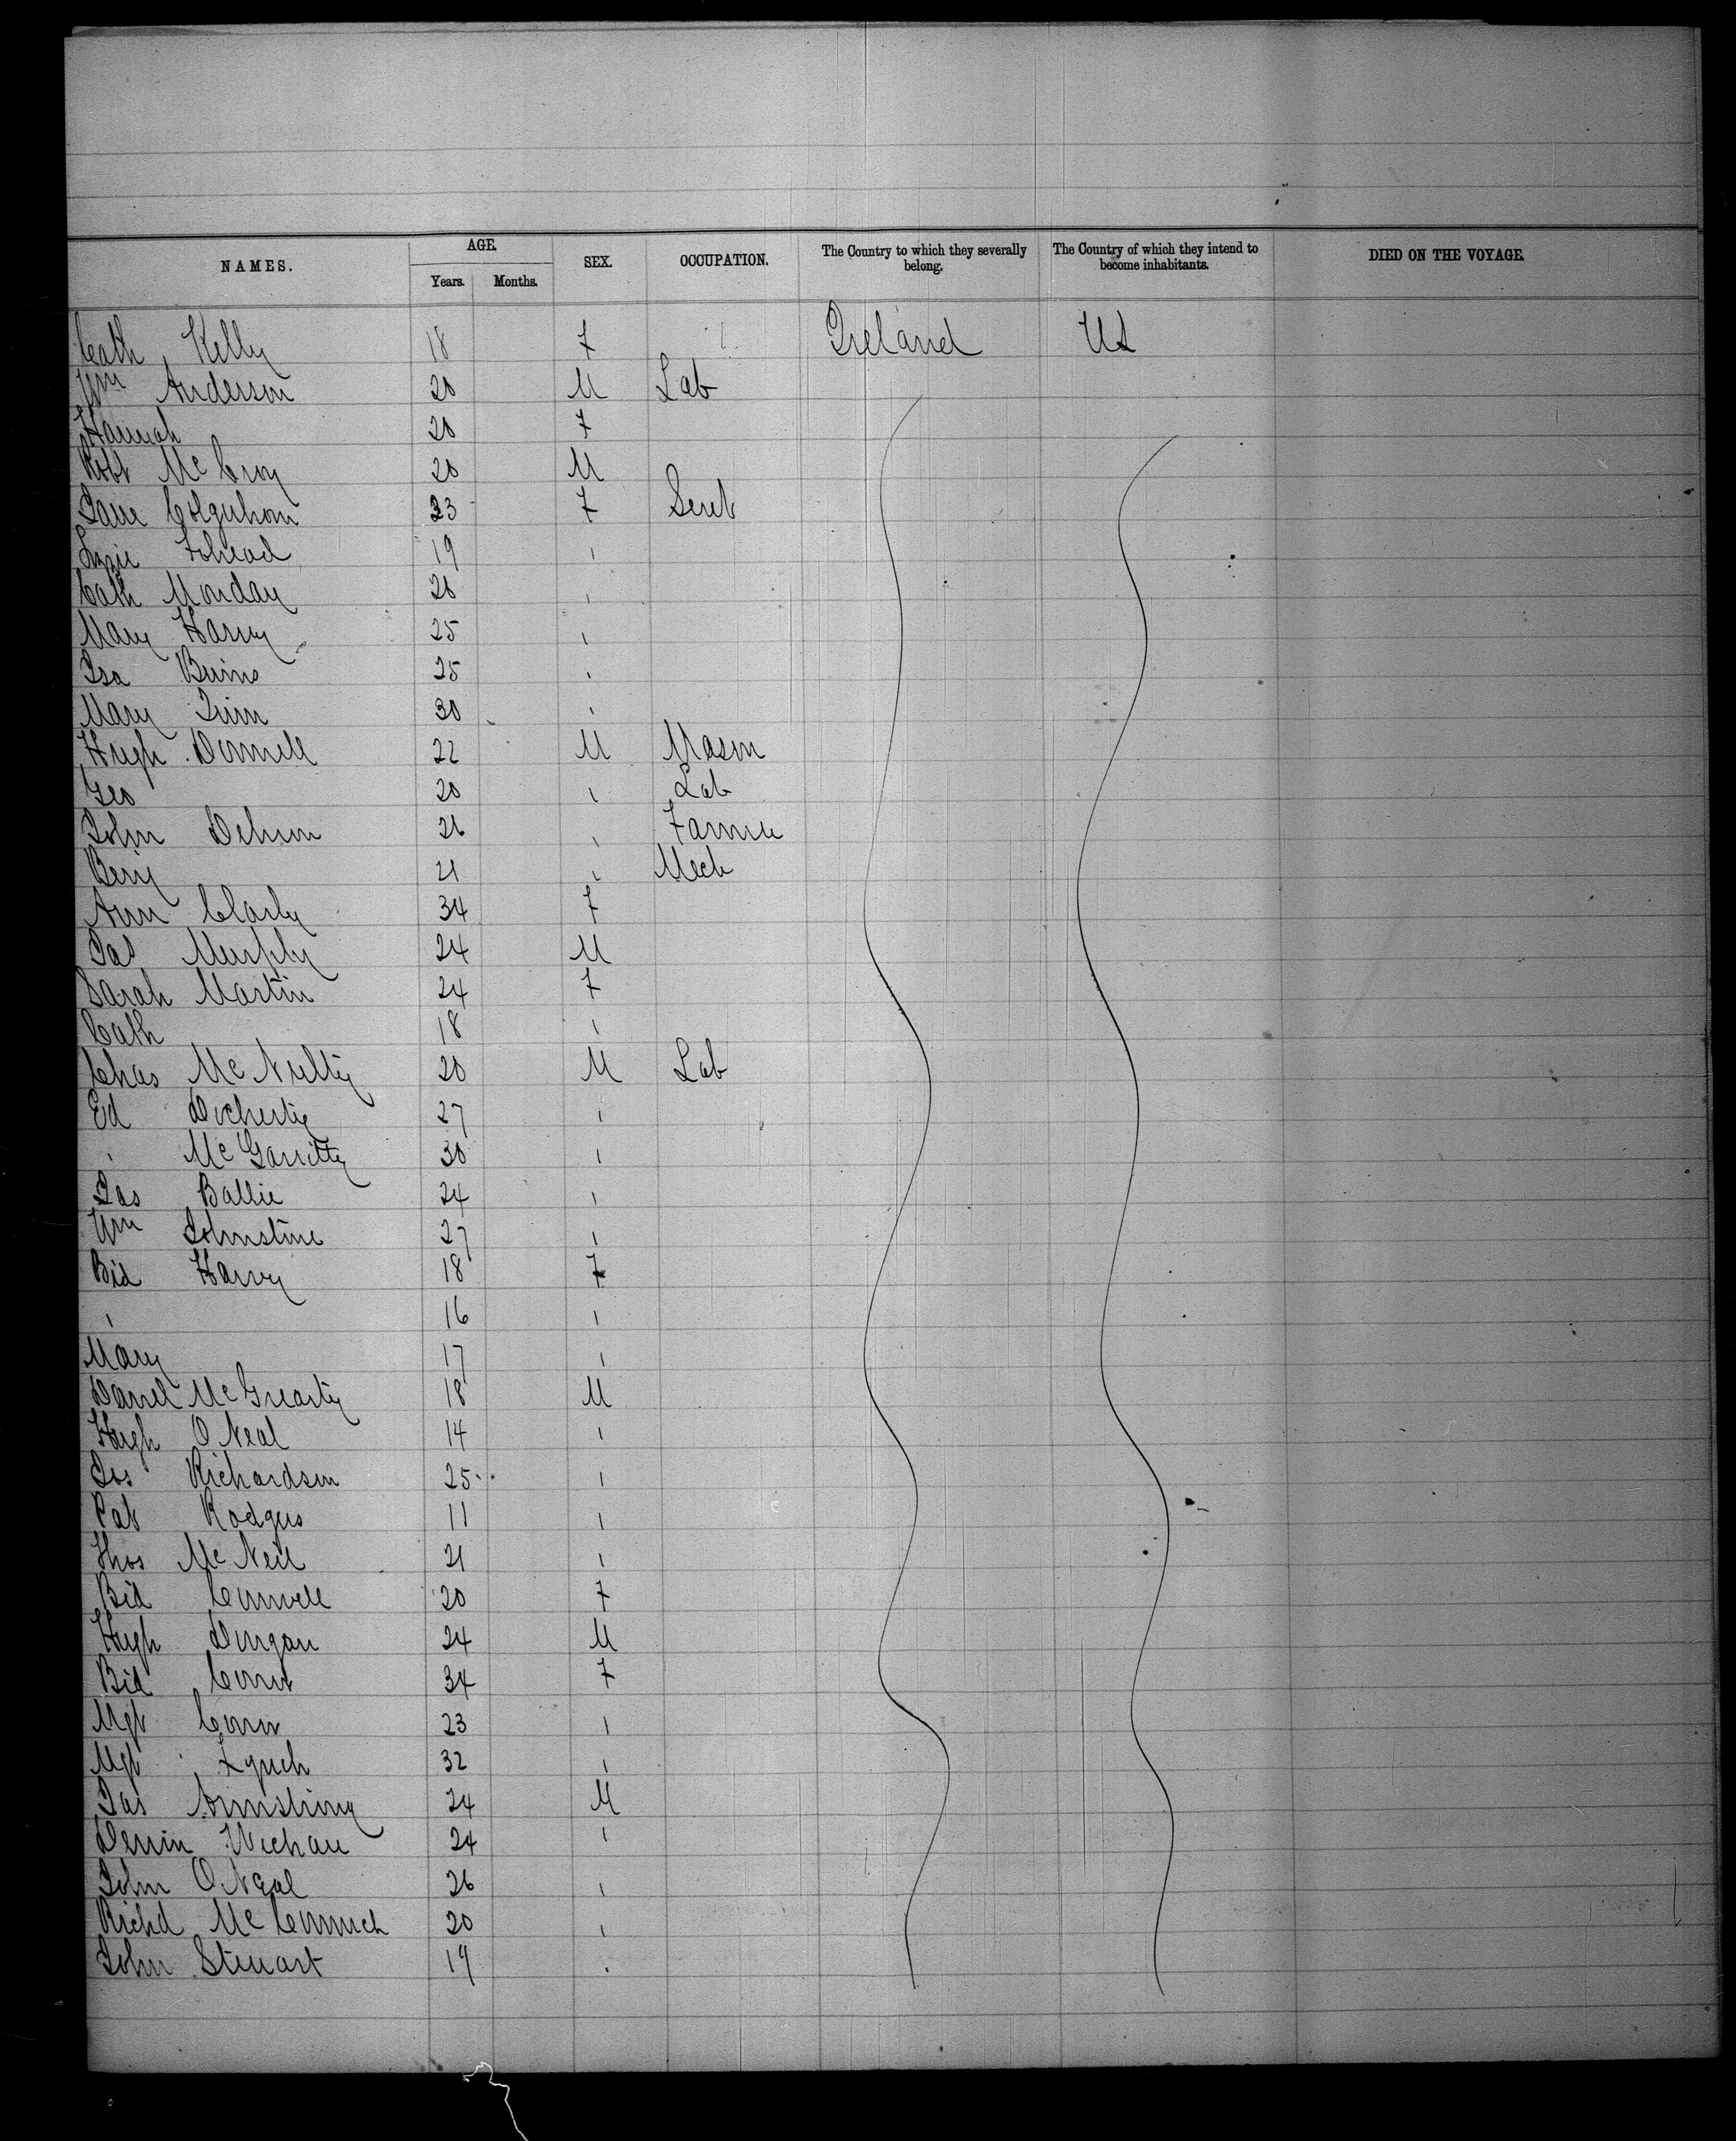 NAMES. AGE. Years. Months. SEX. OCCUPATION. The Country to which they severally belong. The Country of which they intend to become inhabitants. DIED ON THE VOYAGE.
Cath Kelly 18 F Ireland US
Wm Anderson 20 M Lab
Hannah 20 F
Robt McCroy 20 M
Jane Colquhoun 23 F Servt
Lizzie 19 "
Cath Monday 26 "
Mary Harvy 25 "
Isa Burns 25 "
Mary Quinn 30 "
Hugh Donnell 22 M Mason
Geo 20 " Lab
John 26 " Farmer
Benj 21 " Mech
Ann 34 F
Jas Murphy 24 M
Sarah Martin 24 F
Cath 18 "
Chas McNulty 20 M Lab
Ed Docherty 27 "
" McGarritty 30 "
Jas Ballie 24 "
Wm Johnstone 27 "
Bid Harvy 18 F
" 16 "
Mary 17 "
Daniel McGrearty 18 M
Hugh ONeal 14 "
Jos Richardson 25 "
Pat Rodgers 11 "
Thos McNeil 21 "
Bid Connell 20 F
Hugh Dungan 24 M
Bid Conn 34 F
Mgt Conn 23 "
Mgt Lynch 32 "
Jas Armstrong 24 M
24 "
John ONeal 26 "
Richd McCormick 20 "
John Steuart 19 "